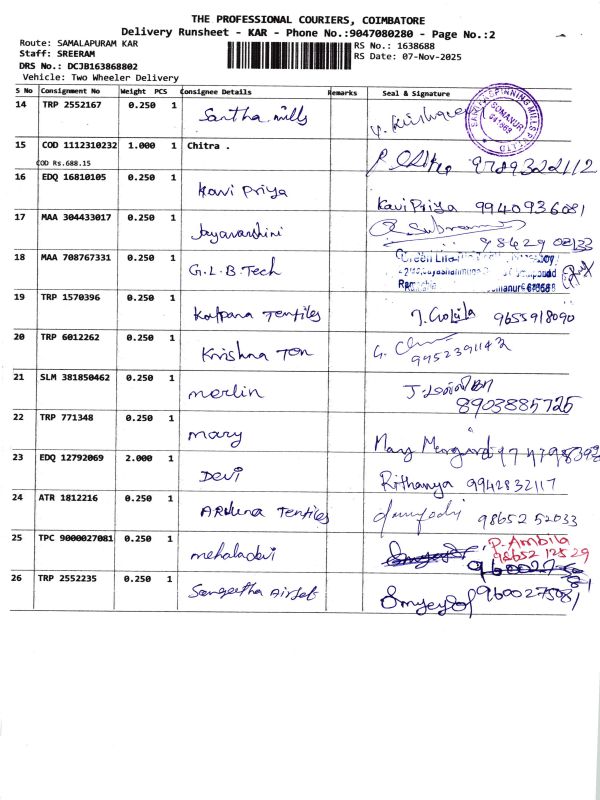 THE PROFESSIONAL COURIERS, COIMBATORE
Delivery Runsheet - KAR - Phone No.:9047080280 - Page No.:2
Route: SAMALAPURAM KAR
RS No.: 1638688
Staff: SREERAM
RS Date: 07-Nov-2025
DRS No.: DCJB163868802
Vehicle: Two Wheeler Delivery
S No Consignment No Weight PCS Consignee Details Remarks Seal & Signature
14 TRP 2552167 0.250 1 Santha mills
SPINNING MILLS
SOMANUR
641668
15 COD 1112310232 1.000 1 Chitra . 9789322112
COD Rs.688.15
16 EDQ 16810105 0.250 1 Kavi Priya Kavi Priya 9940936081
17 MAA 304433017 0.250 1 Jayavarshini 98429 02133
18 MAA 708767331 0.250 1 G.L.B Tech
19 TRP 1570396 0.250 1 Kalpana Tentiles 9655918090
20 TRP 6012262 0.250 1 Krishna Ton 9952391142
21 SLM 381850462 0.250 1 merlin 8903885725
22 TRP 771348 0.250 1 mary Mary
23 EDQ 12792069 2.000 1 Devi Rithanya 9942832117
24 ATR 1812216 0.250 1 Tentiles 98652 52033
25 TPC 9000027081 0.250 1 mehaladevi P. Ambila
98652 12529
26 TRP 2552235 0.250 1 Sangeetha 9600275081